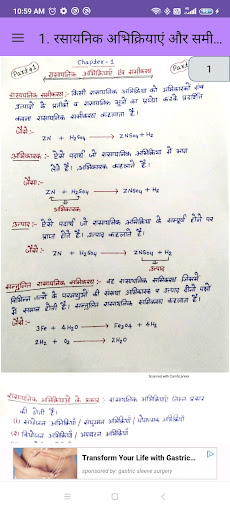 10:59 AM
1. रसायनिक अभिक्रियाएं और समी...
1
Part-1
Chapter-1
रासायनिक अभिक्रियाएं एवं समीकरण
रासायनिक समीकरण :- किसी रासायनिक अभिक्रिया को अभिकारकों एवं
उत्पादों के प्रतीकों व रासायनिक सूत्रों का प्रयोग करके प्रदर्शित
करना रासायनिक समीकरण कहलाता है।
जैसे :-
ZN + H2SO4 → ZNSO4 + H2
अभिकारक :- ऐसे पदार्थ जो रासायनिक अभिक्रिया में भाग
लेते हैं। अभिकारक कहलाते हैं।
जैसे :-
ZN + H2SO4 → ZNSO4 + H2
अभिकारक
उत्पाद :- ऐसे पदार्थ जो रासायनिक अभिक्रिया के सम्पूर्ण होने पर
प्राप्त होते हैं। उत्पाद कहलाते हैं।
जैसे :-
ZN + H2SO4 → ZNSO4 + H2
उत्पाद
सन्तुलित रासायनिक समीकरण :- वह रासायनिक समीकरण जिसमें
विभिन्न तत्वों के परमाणुओं की संख्या अभिकारक व उत्पाद दोनों पक्षों
में समान होती है। सन्तुलित रासायनिक समीकरण कहलाता है।
जैसे :-
3Fe + 4H2O → Fe3O4 + 4H2
2H2 + O2 → 2H2O
Scanned with CamScanner
रासायनिक अभिक्रियाओं के प्रकार :- रासायनिक अभिक्रियाएं निम्न प्रकार
की होती हैं।
(1) संयोजन अभिक्रिया / संयुग्मन अभिक्रिया / योगात्मक अभिक्रिया
(2) वियोजन अभिक्रिया / अपघटन अभिक्रिया
Transform Your Life with Gastric...
sponsored by: gastric sleeve surgery